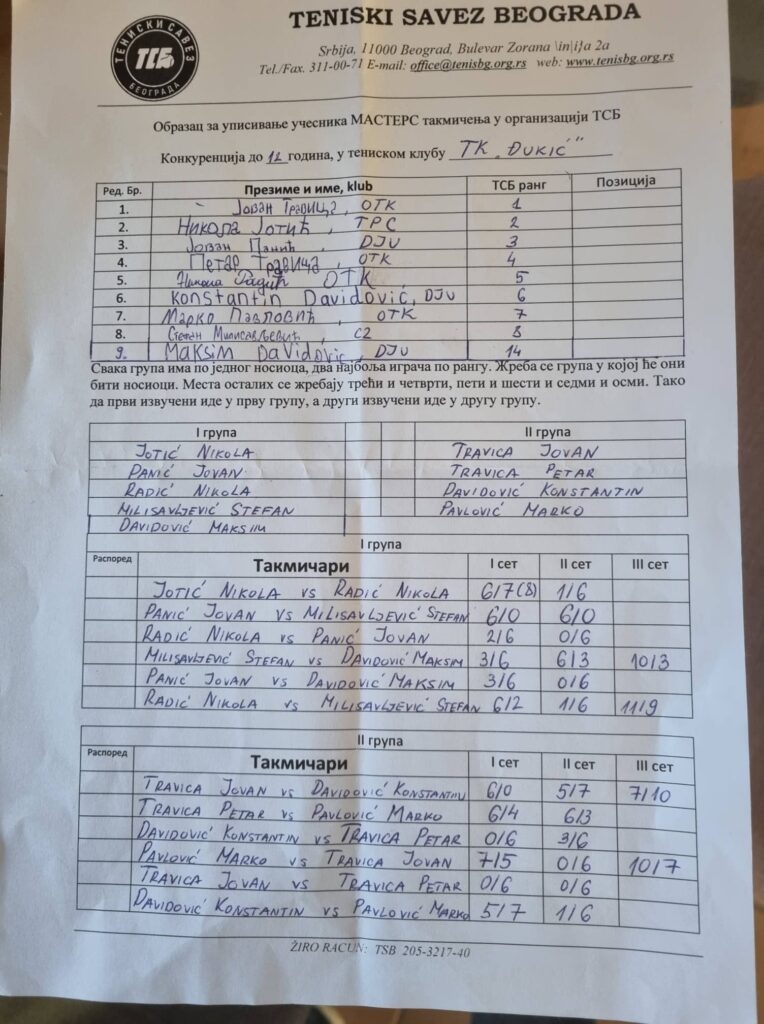 ТЕНИСКИ САВЕЗ
ТСБ
БЕОГРАДА
TENISKI SAVEZ BEOGRADA
Srbija, 11000 Beograd, Bulevar Zorana \in|ija 2a
Tel./Fax. 311-00-71 E-mail: office@tenisbg.org.rs web: www.tenisbg.org.rs
Образац за уписивање учесника МАСТЕРС такмичења у организацији ТСБ
Конкуренција до 12 година, у тениском клубу ТК „Ђукић"
Ред. Бр. Презиме и име, klub ТСБ ранг Позиција
1. Јован Травица, ОТК 1
2. Никола Јотић, ТРС 2
3. Јован Панић, DJU 3
4. Петар Травица, ОТК 4
5. Никола Радић ОТК 5
6. Konstantin Davidović, DJU 6
7. Марко Павловић, ОТК 7
8. Стефан Милисављевић, С2 8
9. Maksim Davidovic, DJU 14
Свака група има по једног носиоца, два најбоља играча по рангу. Жреба се група у којој ће они
бити носиоци. Места осталих се жребају трећи и четврти, пети и шести и седми и осми. Тако
да први извучени иде у прву групу, а други извучени иде у другу групу.
I група II група
JOTIĆ NIKOLA TRAVICA JOVAN
PANIĆ JOVAN TRAVICA PETAR
RADIĆ NIKOLA DAVIDOVIĆ KONSTANTIN
MILISAVLJEVIĆ STEFAN PAVLOVIĆ MARKO
DAVIDOVIĆ MAKSIM
I група
Распоред Такмичари I сет II сет III сет
JOTIĆ NIKOLA VS RADIĆ NIKOLA 6/7(8) 1/6
PANIĆ JOVAN VS MILISAVLJEVIĆ STEFAN 6/0 6/0
RADIĆ NIKOLA VS PANIĆ JOVAN 2/6 0/6
MILISAVLJEVIĆ STEFAN VS DAVIDOVIĆ MAKSIM 3/6 6/3 10/3
PANIĆ JOVAN VS DAVIDOVIĆ MAKSIM 3/6 0/6
RADIĆ NIKOLA VS MILISAVLJEVIĆ STEFAN 6/2 1/6 11/9
II група
Распоред Такмичари I сет II сет III сет
TRAVICA JOVAN VS DAVIDOVIĆ KONSTANTIN 6/0 5/7 7/10
TRAVICA PETAR VS PAVLOVIĆ MARKO 6/4 6/3
DAVIDOVIĆ KONSTANTIN VS TRAVICA PETAR 0/6 3/6
PAVLOVIĆ MARKO VS TRAVICA JOVAN 7/5 0/6 10/7
TRAVICA JOVAN VS TRAVICA PETAR 0/6 0/6
DAVIDOVIĆ KONSTANTIN VS PAVLOVIĆ MARKO 5/7 1/6
ŽIRO RACUN: TSB 205-3217-40